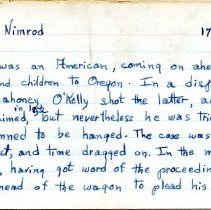 Nimrod 17
was an American, coming on ahe
nd children to Oregon. In a disp
ahoney O'Kelly shot the latter, an
in 1852
aimed, but nevertheless he was trie
mned to be hanged. The case was
and time dragged on. In the m
, having got word of the proceedin
head of the wagon to plead his